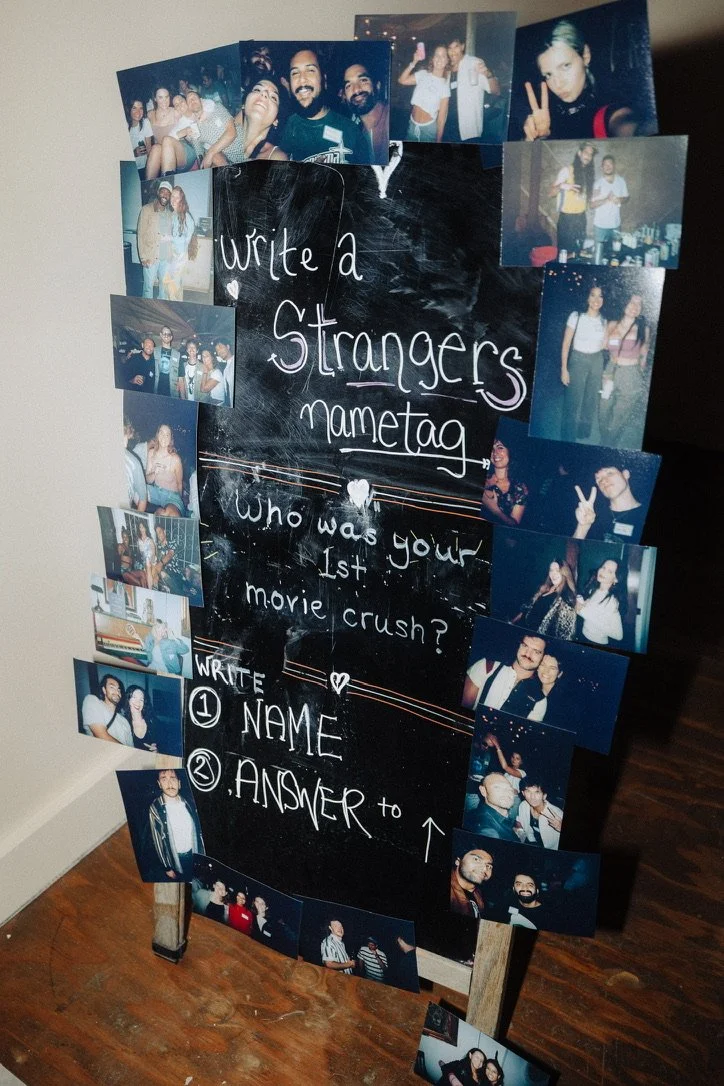 write a
Strangers
nametag
Who was your
1st
movie crush?
WRITE
① NAME
② ANSWER to ↑